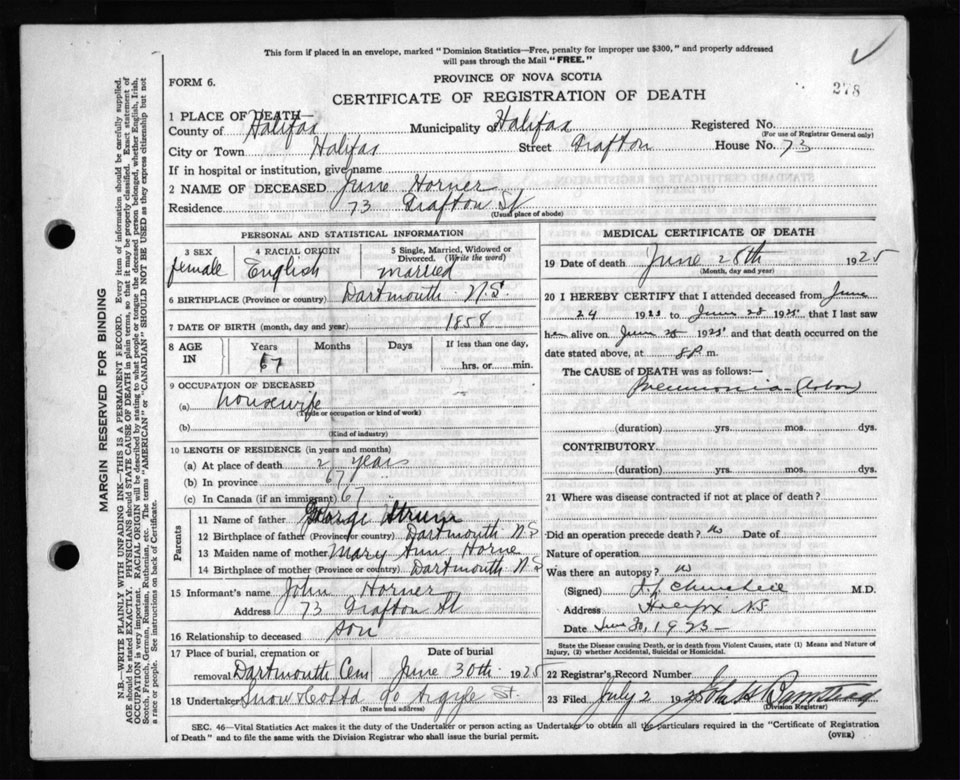 This form if placed in an envelope, marked "Dominion Statistics—Free, penalty for improper use $300," and properly addressed
will pass through the Mail "FREE."
FORM 6.
PROVINCE OF NOVA SCOTIA
278
CERTIFICATE OF REGISTRATION OF DEATH
1 PLACE OF DEATH—
County of Halifax Municipality of Halifax Registered No.
(For use of Registrar General only)
City or Town Halifax Street Grafton House No. 73
If in hospital or institution, give name
2 NAME OF DECEASED June Horner
Residence 73 Grafton St
(Usual place of abode)
PERSONAL AND STATISTICAL INFORMATION
3 SEX 4 RACIAL ORIGIN 5 Single, Married, Widowed or
Divorced. (Write the word)
female English married
6 BIRTHPLACE (Province or country) Dartmouth N.S.
7 DATE OF BIRTH (month, day and year) 1858
8 AGE IN Years Months Days If less than one day,
67 hrs. or min.
9 OCCUPATION OF DECEASED
(a) housewife
(Trade or occupation or kind of work)
(b)
(Kind of industry)
10 LENGTH OF RESIDENCE (in years and months)
(a) At place of death 2 years
(b) In province 67
(c) In Canada (if an immigrant) 67
Parents
11 Name of father George
12 Birthplace of father (Province or country) Dartmouth N S
13 Maiden name of mother Mary Ann Horne
14 Birthplace of mother (Province or Country) Dartmouth N S
15 Informant's name John Horner
Address 73 Grafton St
16 Relationship to deceased son
17 Place of burial, cremation or Date of burial
removal Dartmouth Cem June 30th 1925
18 Undertaker Snow & Co Ltd 90 Argyle St.
(Name and address)
MEDICAL CERTIFICATE OF DEATH
19 Date of death June 28th 1925
(Month, day and year)
20 I HEREBY CERTIFY that I attended deceased from June
24 1925 to June 28 1925 that I last saw
her alive on June 28 1925 and that death occurred on the
date stated above, at 8P m.
The CAUSE of DEATH was as follows:
Pneumonia (Lobar)
(duration) yrs. mos. dys.
CONTRIBUTORY.
(duration) yrs. mos. dys.
21 Where was disease contracted if not at place of death?
Did an operation precede death? no Date of
Nature of operation
Was there an autopsy? no
(Signed) Churchill M.D.
Address Halifax NS
Date June 30, 1925
State the Disease causing Death, or in death from Violent Causes, state (1) Means and Nature of
Injury, (2) whether Accidental, Suicidal or Homicidal.
22 Registrar's Record Number
23 Filed July 2 1925 John
(Division Registrar)
SEC. 46—Vital Statistics Act makes it the duty of the Undertaker or person acting as Undertaker to obtain all the particulars required in the "Certificate of Registration
of Death" and to file the same with the Division Registrar who shall issue the burial permit. (OVER)
MARGIN RESERVED FOR BINDING
N.B.—WRITE PLAINLY WITH UNFADING INK—THIS IS A PERMANENT RECORD. Every item of information should be carefully supplied.
AGE should be stated EXACTLY. PHYSICIANS should STATE CAUSE OF DEATH in plain terms, so that it may be properly classified. Exact statement of
OCCUPATION is very important. RACIAL ORIGIN will be described by stating to what people or tongue the deceased person belonged, whether English, Irish,
Scotch, French, German, Russian, Ruthenian, etc. The terms "AMERICAN" or "CANADIAN" SHOULD NOT BE USED as they express citizenship but not
a race or people. See instructions on back of Certificate.